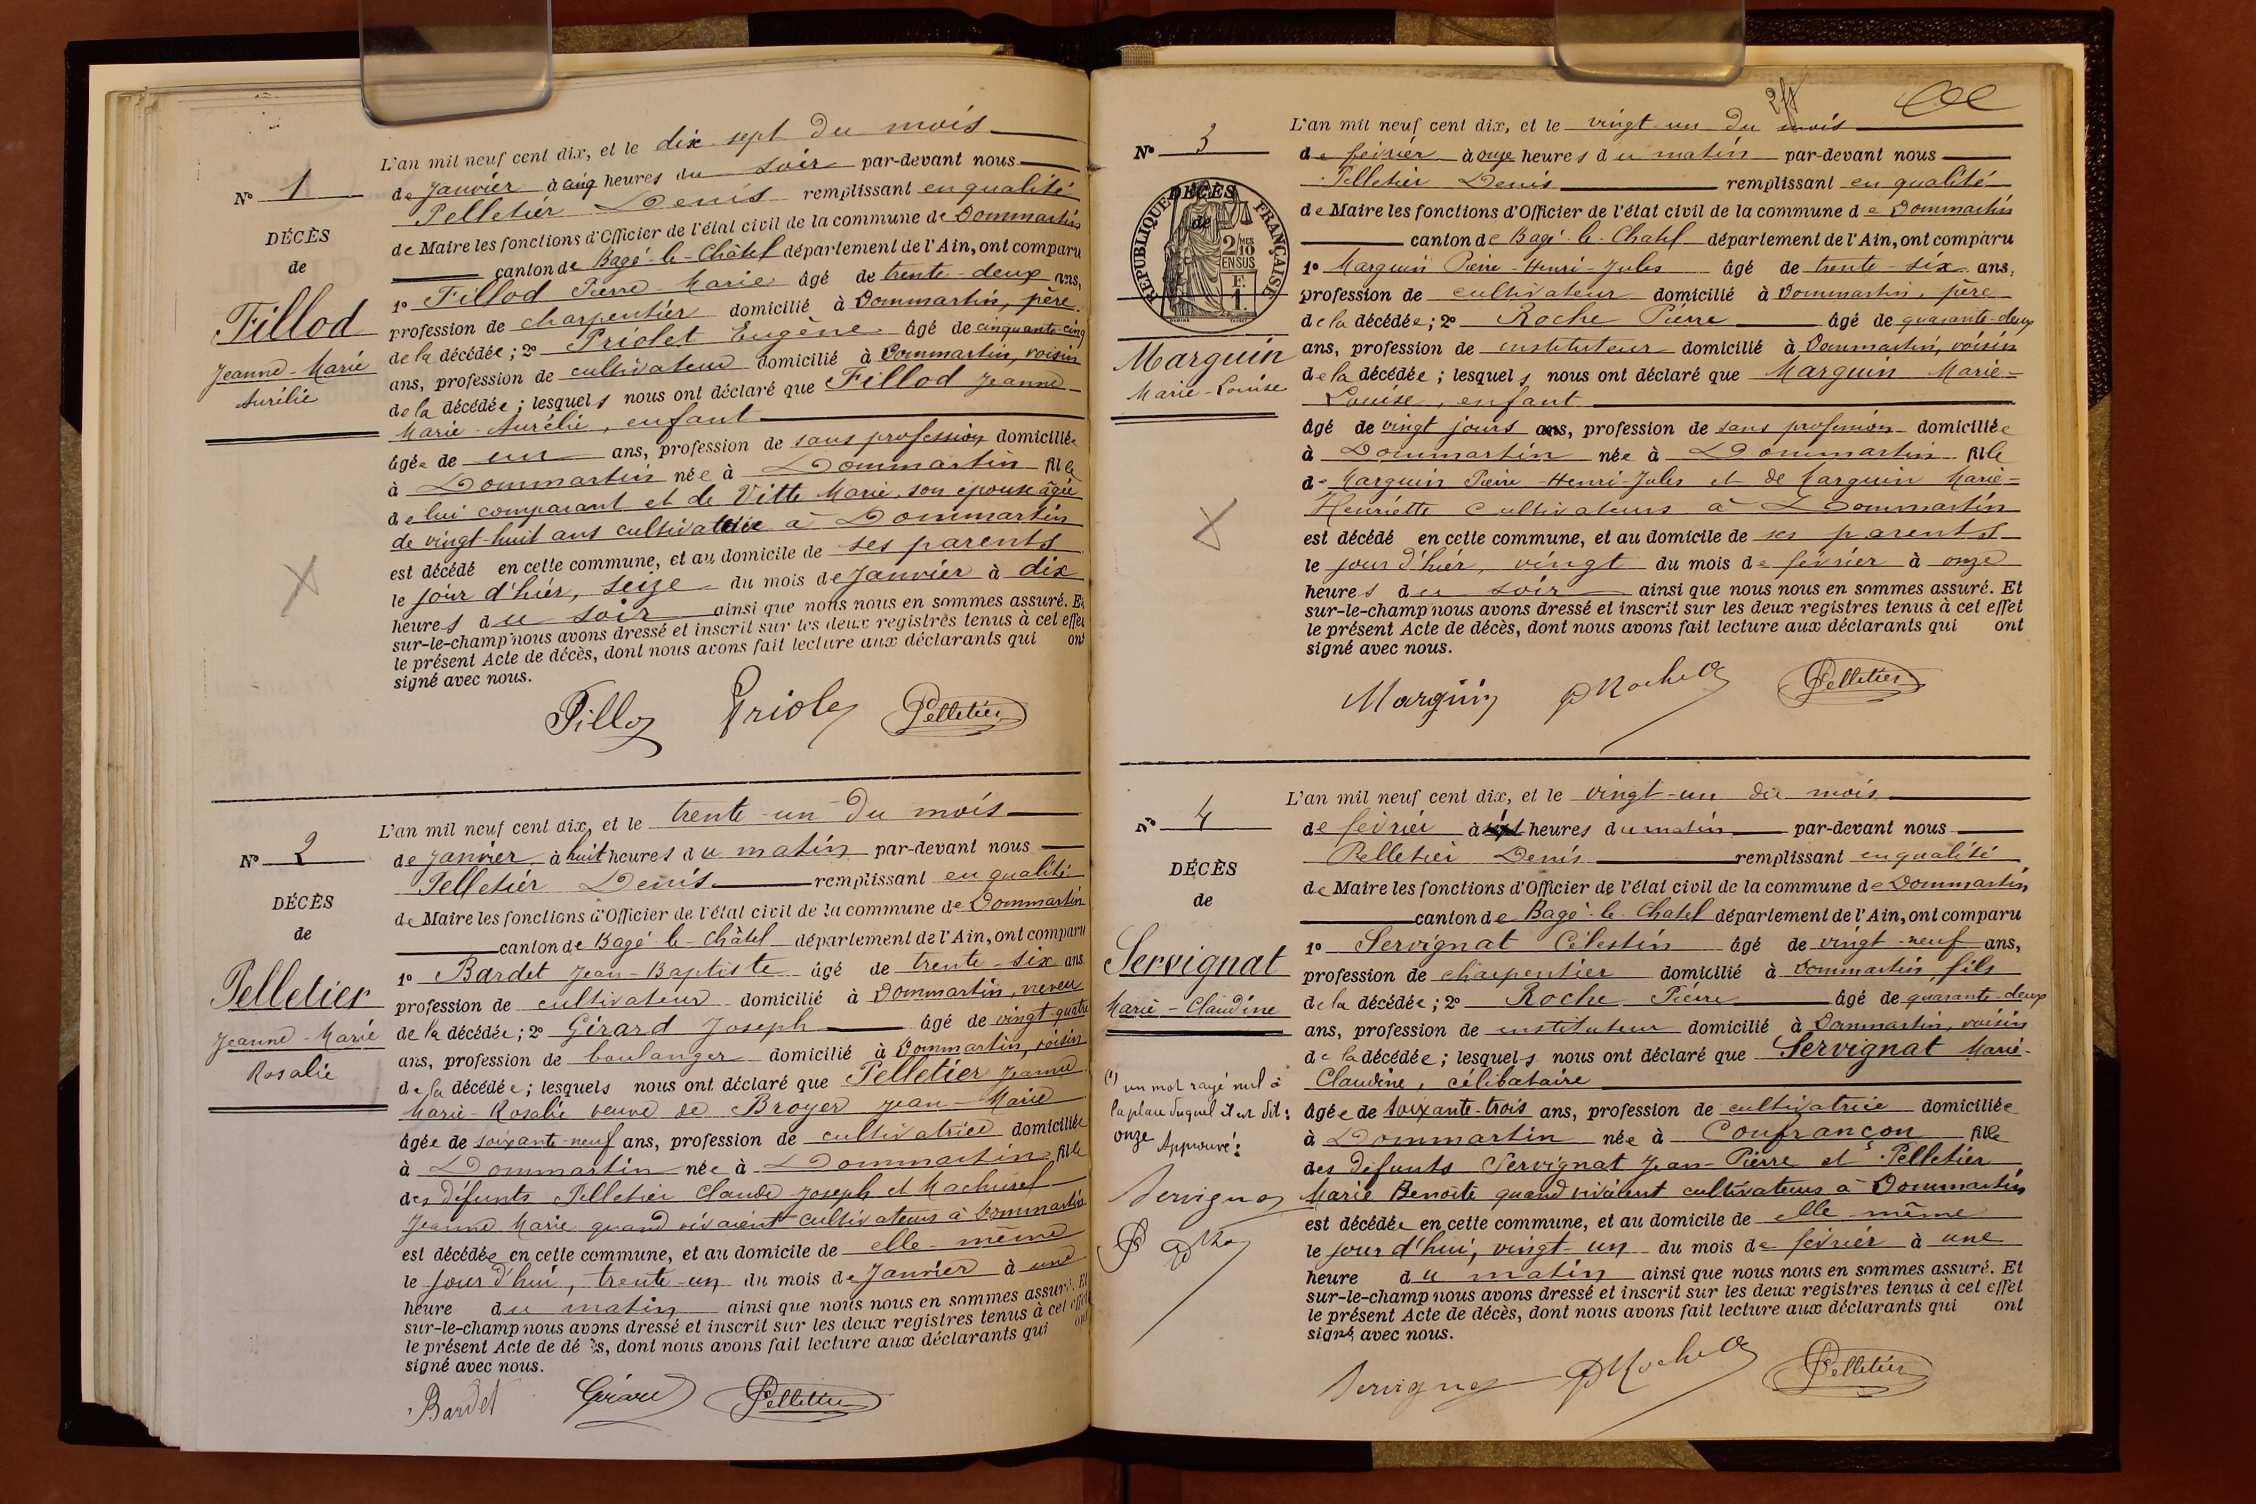 L'an mil neuf cent dix, et le dix sept du mois
de Janvier à cinq heures du soir par-devant nous
Pelletier Denis remplissant en qualité
de Maire les fonctions d'Officier de l'état civil de la commune de Dommartin
canton de Bagé-le-Châtel département de l'Ain, ont comparu
1° Fillod Pierre-Marie âgé de trente-deux ans,
profession de charpentier domicilié à Dommartin, père
de la décédée; 2° Priolet Eugène âgé de cinquante cinq
ans, profession de cultivateur domicilié à Dommartin, voisin
de la décédée; lesquels nous ont déclaré que Fillod Jeanne-
Marie-Aurélie, enfant
âgée de un ans, profession de sans profession domiciliée
à Dommartin née à Dommartin fille
de lui comparant et de Vitte Marie son épouse âgée
de vingt-huit ans cultivatrice à Dommartin
est décédé en cette commune, et au domicile de ses parents
le jour d'hier, seize du mois de Janvier à dix
heures du soir ainsi que nous nous en sommes assuré. Et
sur-le-champ nous avons dressé et inscrit sur les deux registres tenus à cet effet
le présent Acte de décès, dont nous avons fait lecture aux déclarants qui ont
signé avec nous.
N° 1
DÉCÈS
de
Fillod
Jeanne-Marie
Aurélie
Fillod Priolet Pelletier
L'an mil neuf cent dix, et le trente-un du mois
de Janvier à huit heures du matin par-devant nous
Pelletier Denis remplissant en qualité
de Maire les fonctions d'Officier de l'état civil de la commune de Dommartin
canton de Bagé-le-Châtel département de l'Ain, ont comparu
1° Bardet Jean-Baptiste âgé de trente-six ans
profession de cultivateur domicilié à Dommartin, neveu
de la décédée; 2° Gérard Joseph âgé de vingt-quatre
ans, profession de boulanger domicilié à Dommartin, voisin
de la décédée; lesquels nous ont déclaré que Pelletier Jeanne
Marie-Rosalie veuve de Broyer Jean-Marie
âgée de soixante-neuf ans, profession de cultivatrice domiciliée
à Dommartin née à Dommartin fille
des défunts Pelletier Claude-Joseph et Machurel
Jeanne Marie quand vivaient cultivateurs à Dommartin
est décédée en cette commune, et au domicile de elle-même
le jour d'hui, trente-un du mois de Janvier à une
heure du matin ainsi que nous nous en sommes assuré. Et
sur-le-champ nous avons dressé et inscrit sur les deux registres tenus à cet effet
le présent Acte de décès, dont nous avons fait lecture aux déclarants qui ont
signé avec nous.
N° 2
DÉCÈS
de
Pelletier
Jeanne-Marie
Rosalie
Bardet Gérard Pelletier
L'an mil neuf cent dix, et le vingt-un du mois
de février à onze heures du matin par-devant nous
Pelletier Denis remplissant en qualité
de Maire les fonctions d'Officier de l'état civil de la commune de Dommartin
canton de Bagé-le-Chatel département de l'Ain, ont comparu
1° Marguin Pierre-Henri-Jules âgé de trente-six ans,
profession de cultivateur domicilié à Dommartin, père
de la décédée; 2° Roche Pierre âgé de quarante-deux
ans, profession de instituteur domicilié à Dommartin, voisin
de la décédée; lesquels nous ont déclaré que Marguin Marie-
Louise, enfant
âgé de vingt jours ans, profession de sans profession domiciliée
à Dommartin née à Dommartin fille
de Marguin Pierre-Henri-Jules et de Marguin Marie-
Henriette cultivateurs à Dommartin
est décédé en cette commune, et au domicile de ses parents
le jour d'hier, vingt du mois de février à onze
heures du soir ainsi que nous nous en sommes assuré. Et
sur-le-champ nous avons dressé et inscrit sur les deux registres tenus à cet effet
le présent Acte de décès, dont nous avons fait lecture aux déclarants qui ont
signé avec nous.
N° 3
DÉCÈS
de
RÉPUBLIQUE FRANÇAISE
2/10 EN SUS
Marguin
Marie-Louise
Marguin P Roche Pelletier
L'an mil neuf cent dix, et le vingt-un du mois
de février à sept heures du matin par-devant nous
Pelletier Denis remplissant en qualité
de Maire les fonctions d'Officier de l'état civil de la commune de Dommartin
canton de Bagé-le-Chatel département de l'Ain, ont comparu
1° Servignat Célestin âgé de vingt-neuf ans,
profession de charpentier domicilié à Dommartin, fils
de la décédée; 2° Roche Pierre âgé de quarante-deux
ans, profession de instituteur domicilié à Dommartin, voisin
de la décédée; lesquels nous ont déclaré que Servignat Marie-
Claudine, célibataire
âgée de soixante-trois ans, profession de cultivatrice domiciliée
à Dommartin née à Confrançon fille
des défunts Servignat Jean-Pierre et Pelletier
Marie Benoite quand vivaient cultivateurs à Dommartin
est décédée en cette commune, et au domicile de elle-même
le jour d'hui, vingt-un du mois de février à une
heure du matin ainsi que nous nous en sommes assuré. Et
sur-le-champ nous avons dressé et inscrit sur les deux registres tenus à cet effet
le présent Acte de décès, dont nous avons fait lecture aux déclarants qui ont
signé avec nous.
N° 4
DÉCÈS
de
Servignat
Marie-Claudine
(1) un mot rayé nul à
la place duquel il est dit:
onze Approuvé:
Servignat
Servignat P Roche Pelletier